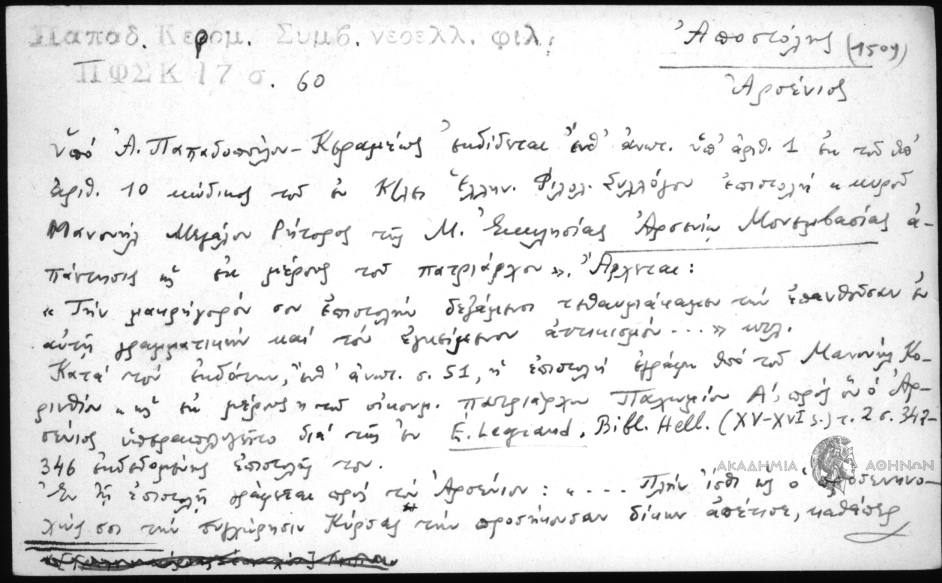 Παπαδ. Κεραμ. Συμβ. νεοελλ. φιλ.
ΠΦΣΚ 17 σ. 60
Ἀποστόλης (1509)
Ἀρσένιος
ὑπό Ἀ. Παπαδοπούλου-Κεραμέως ἐκδίδεται ἔνθ' ἀνωτ. ὑπ' ἀριθ. 1 ἐκ τοῦ ὑπ'
ἀριθ. 10 κώδικος τοῦ ἐν Κ/λει Ἑλλην. Φιλολ. Συλλόγου ἐπιστολή « κυροῦ
Μανουήλ Μεγάλου Ρήτορος τῆς Μ. Ἐκκλησίας Ἀρσενίῳ Μονεμβασίας ἀ-
πάντησις ὡς ἐκ μέρους τοῦ πατριάρχου». Ἄρχεται:
« Τήν μακρήγορόν σου ἐπιστολήν δεξάμενοι τεθαυμάκαμεν τήν ἐπανθοῦσαν ἐν
αὐτῇ γραμματικήν καί τόν ἐγκείμενον ἀττικισμόν ... » κτλ.
Κατά τόν ἐκδότην, ἔνθ' ἀνωτ. σ. 51, ἡ ἐπιστολή ἐγράφη ὑπό τοῦ Μανουήλ Κο-
ρινθίου « ὡς ἐκ μέρους » τοῦ οἰκουμ. πατριάρχου Παχωμίου Α', πρός ὅν ὁ Ἀρ-
σένιος ὑπεραπελογεῖτο διά τῆς ἐν E. Legrand, Bibl. Hell. (XV-XVI s.) τ. 2 σ. 342-
346 ἐκδεδομένης ἐπιστολῆς του.
Ἐν τῇ ἐπιστολῇ γράφεται πρός τόν Ἀρσένιον: « .... Πλήν ἴσθι ὡς ὁ προσενηνο-
χώς σοι τήν συγχώρησιν Κύρσας τήν προσήκουσαν δίκην ἀπέτισε, καθάπερ
ΑΚΑΔΗΜΙΑ ΑΘΗΝΩΝ